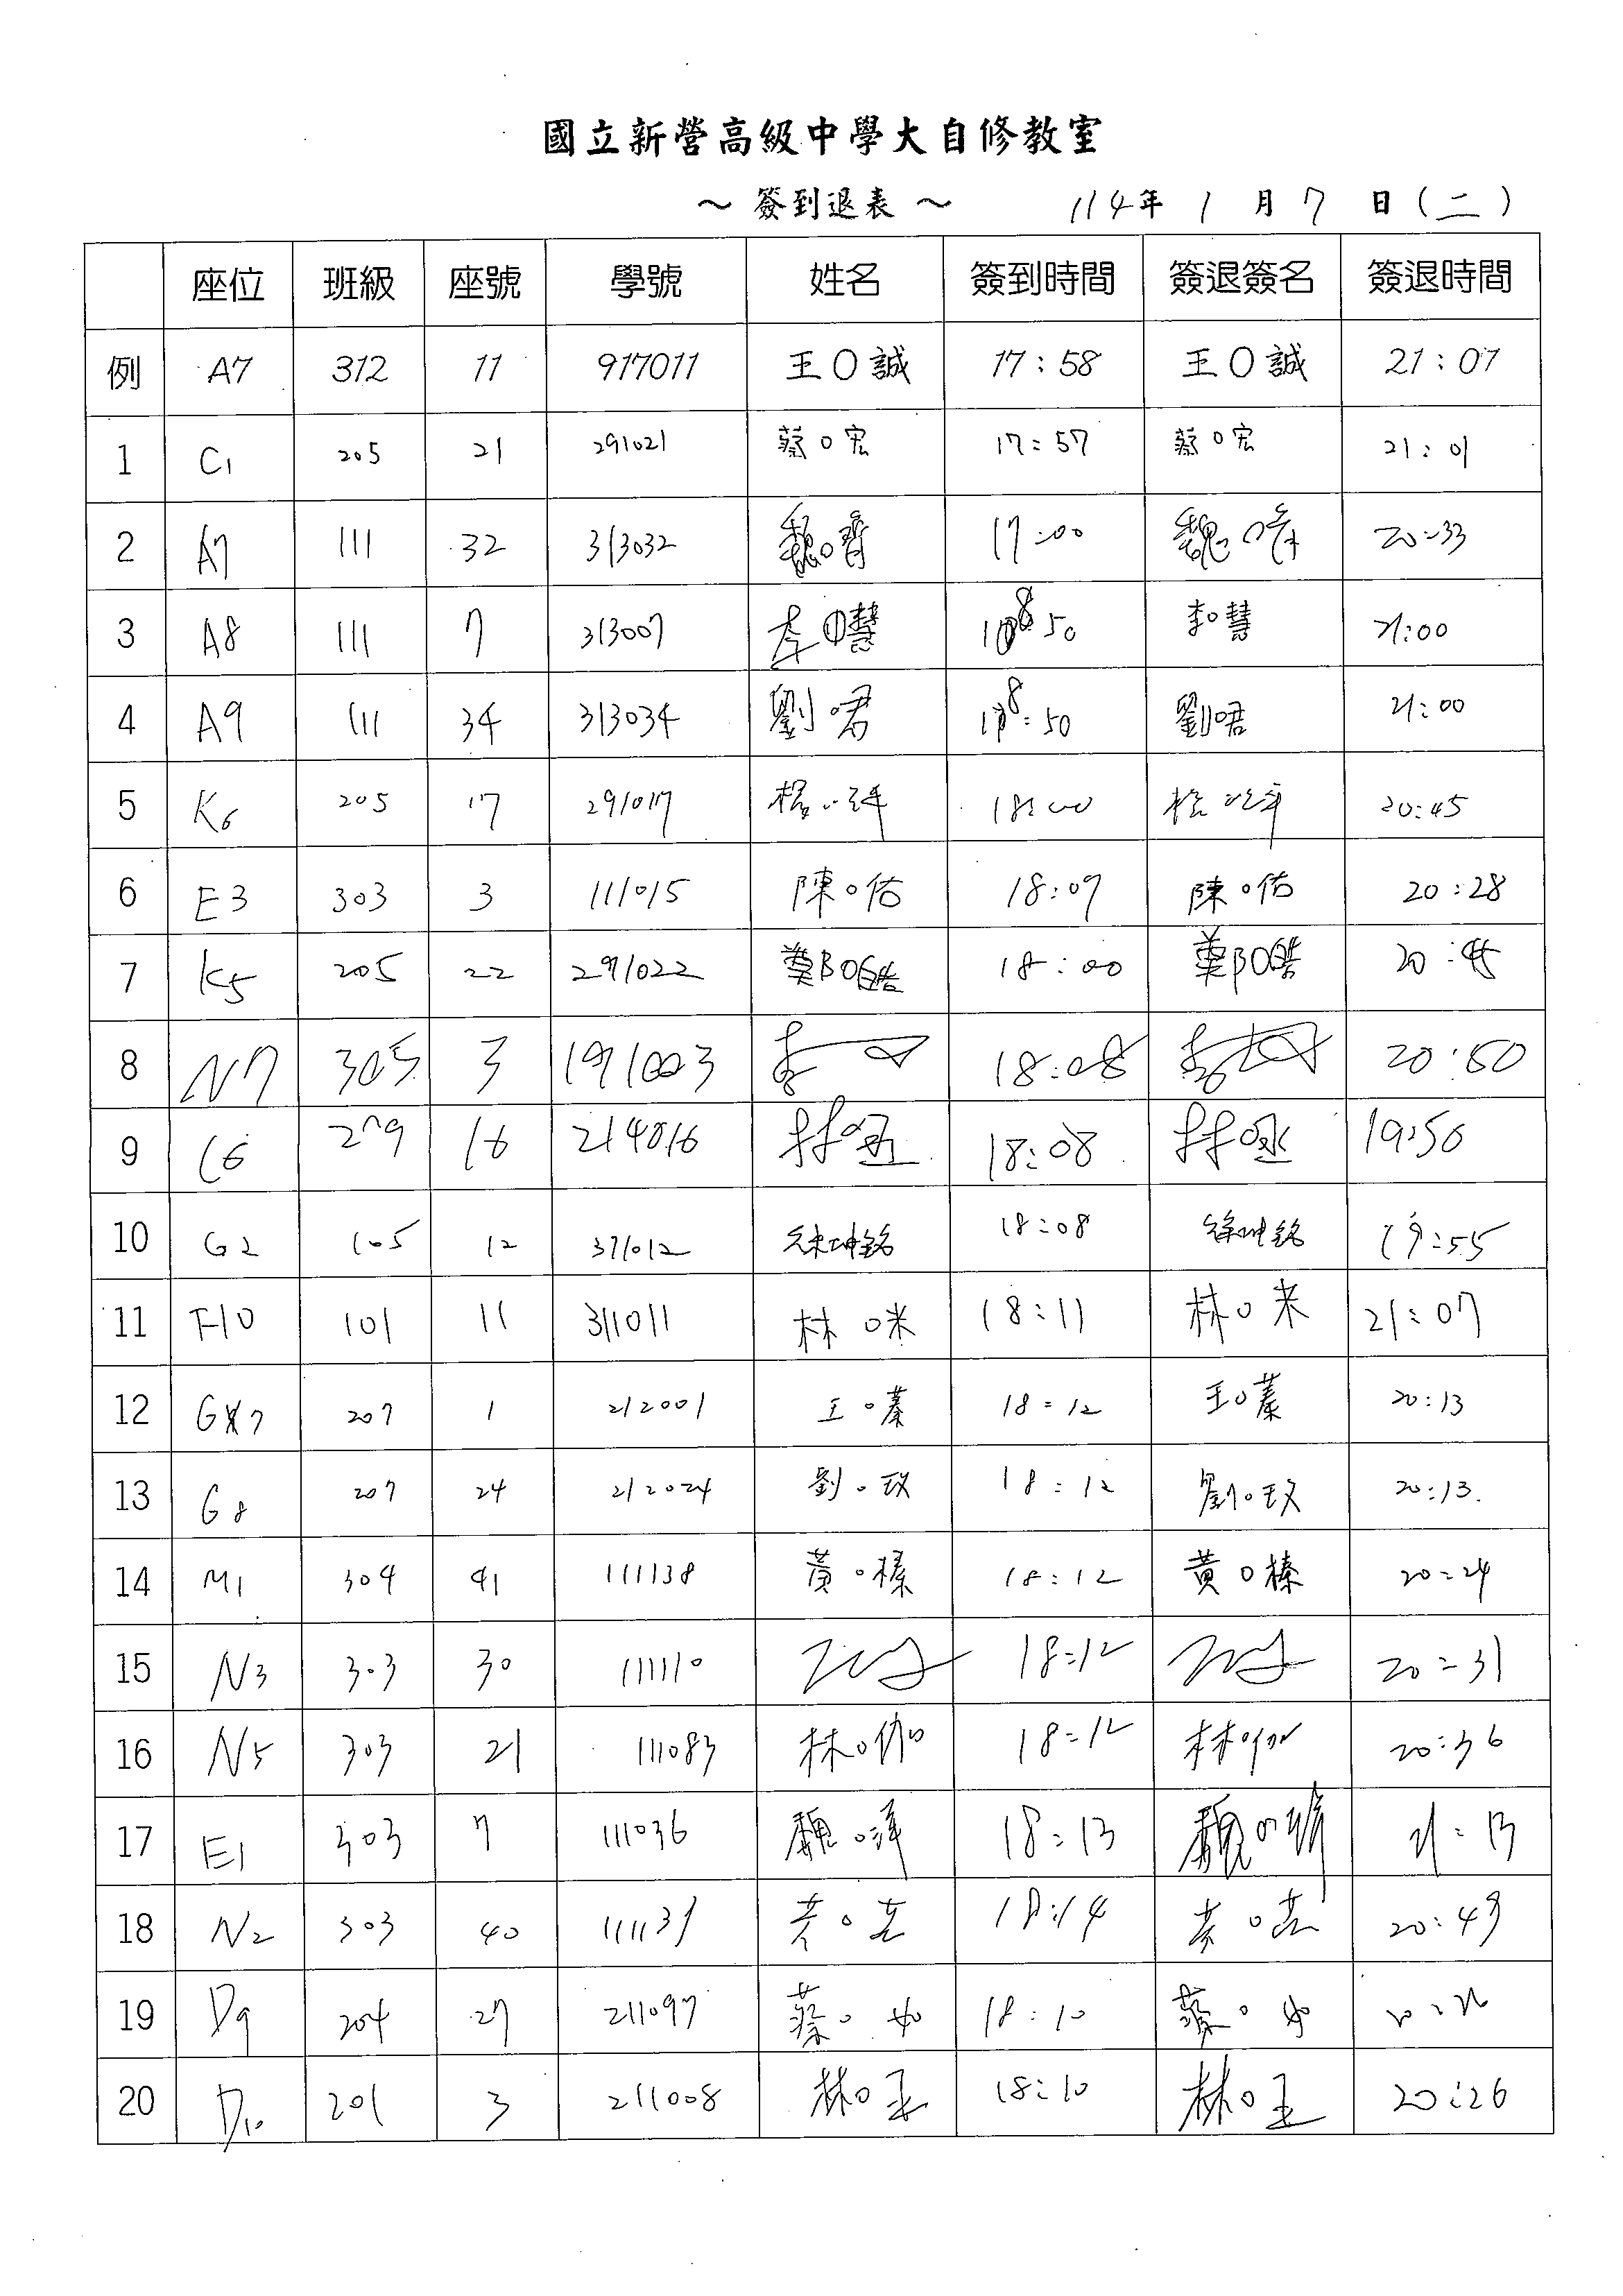 國立新營高級中學大自修教室
～ 簽到退表 ～ 114年 1 月 7 日(二)
座位 班級 座號 學號 姓名 簽到時間 簽退簽名 簽退時間
例 A7 312 11 917011 王〇誠 17:58 王〇誠 21:07
1 C1 205 21 291021 蔡〇宏 17:57 蔡〇宏 21:01
2 A7 111 32 313032 魏〇 17:00 魏〇 20:33
3 A8 111 7 313007 李〇慧 18:50 李〇慧 21:00
4 A9 111 34 313034 劉〇君 18:50 劉〇君 21:00
5 K6 205 17 291017 楊 18:00 20:45
6 E3 303 3 111015 陳〇佑 18:07 陳〇佑 20:28
7 K5 205 22 291022 鄭〇皓 18:00 鄭〇皓 20:45
8 N7 305 3 191003 18:08 20:50
9 C6 209 16 214016 林〇 18:08 林〇 19:50
10 G2 105 12 371012 徐坤銘 18:08 徐坤銘 19:55
11 F10 101 11 311011 林〇米 18:11 林〇米 21:07
12 G7 207 1 212001 王〇蓁 18:12 王〇蓁 20:13
13 G8 207 24 212024 劉〇玟 18:12 劉〇玟 20:13
14 M1 304 41 111138 黃〇榛 18:12 黃〇榛 20:24
15 N3 303 30 111110 18:12 20:31
16 N5 303 21 111083 林〇伽 18:12 林〇伽 20:36
17 E1 303 7 111036 魏〇 18:13 魏〇 21:13
18 N2 303 40 111131 18:14 20:49
19 D9 204 27 211097 蔡〇 18:10 蔡〇
20 D10 201 3 211008 林〇 18:10 林〇 20:26